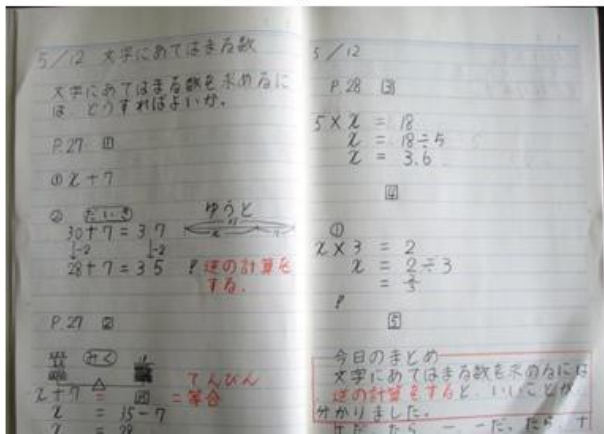 5/12 文字にあてはまる数
文字にあてはまる数を求めるに
は、どうすればよいか。
P.27 1
① x+7
② だいき
ゆうと
30+7=37
-2 -2
28+7=35
逆の計算を
する。
P.27 2
みく
てんびん
x+7=35
=等合
x=35-7
x=28
5/12
P.28 3
5×x=18
x=18÷5
x=3.6
4
①
x×3=2
x=2÷3
=2/3
5
今日のまとめ
文字にあてはまる数を求めるには
逆の計算をすると、いいことが
分かりました。